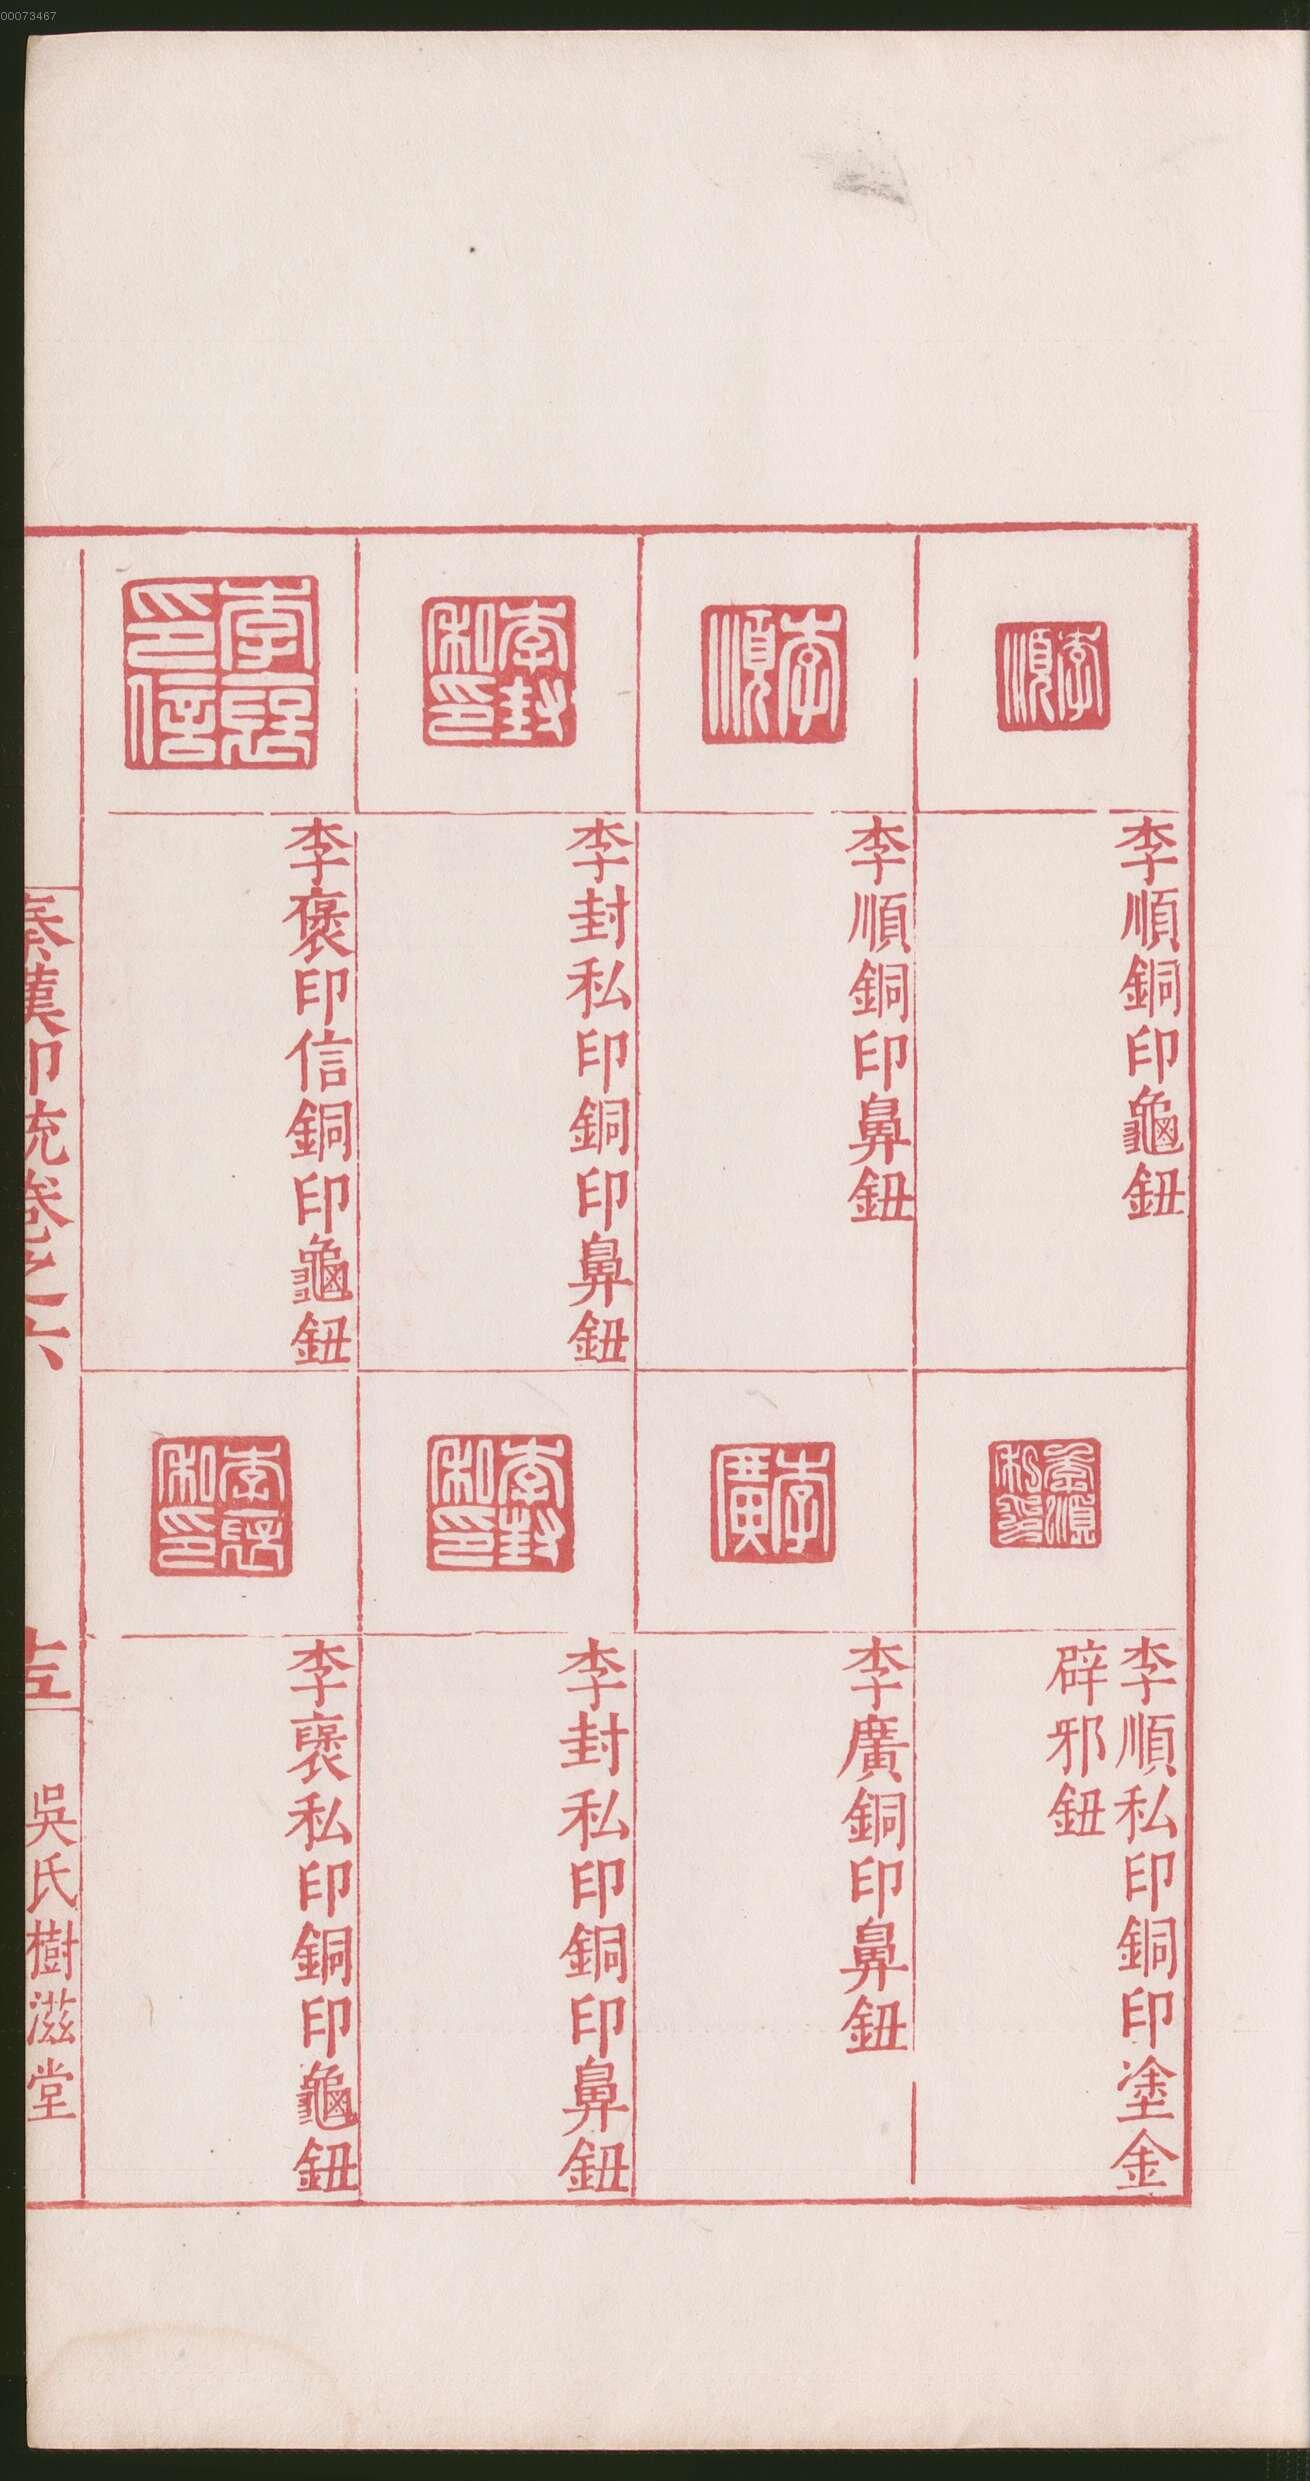 00073467
李順
李順銅印龜鈕
李順
李順銅印鼻鈕
李封
私印
李封私印銅印鼻鈕
李褒
印信
李褒印信銅印龜鈕
李順私印銅印塗金
辟邪鈕
李廣
李廣銅印鼻鈕
李封
私印
李封私印銅印鼻鈕
李褒
私印
李褒私印銅印龜鈕
秦漢印統卷之六
吳氏樹滋堂